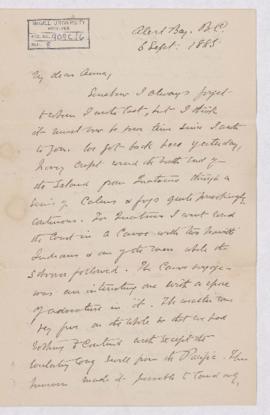 McGILL UNIVERSITY
ARCHIVES
ACC. NO.
REF. 8
Alert Bay, B.C.
6 Sept. 1885
My dear Anna,
Somehow I always forget
when I wrote last, but I think
it must now be some time since I wrote
to you. We got back here yesterday,
having crept round the north end of
the Island from Quatsino through a
series of Calms & fogs quite provokingly
continuous. In Quatsino I went round
the Coast in a Canoe with two
Indians & an while the
Schooner followed. The Canoe voyage
was an interesting one with a spice
of adventure in it. The weather was
very fine on the whole so that we had
nothing to Contend with except the
long swell from the Pacific. This
however made it possible to land only